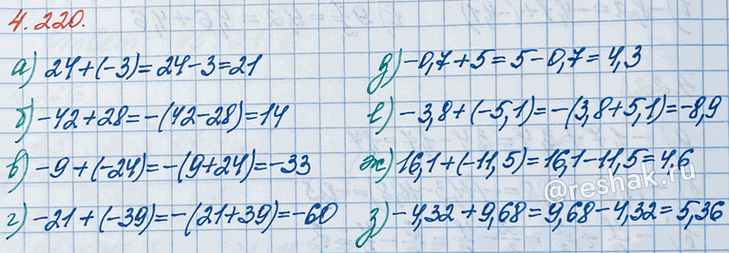 4.220.
а) 24+(-3)=24-3=21
б) -42+28=-(42-28)=14
в) -9+(-24)=-(9+24)=-33
г) -21+(-39)=-(21+39)=-60
д) -0,7+5=5-0,7=4,3
е) -3,8+(-5,1)=-(3,8+5,1)=-8,9
ж) 16,1+(-11,5)=16,1-11,5=4,6
з) -4,32+9,68=9,68-4,32=5,36
@reshak.ru